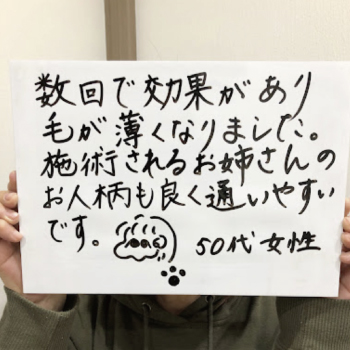 数回で効果があり
毛が薄くなりました。
施術されるお姉さんの
お人柄も良く通いやすい
です。
50代 女性